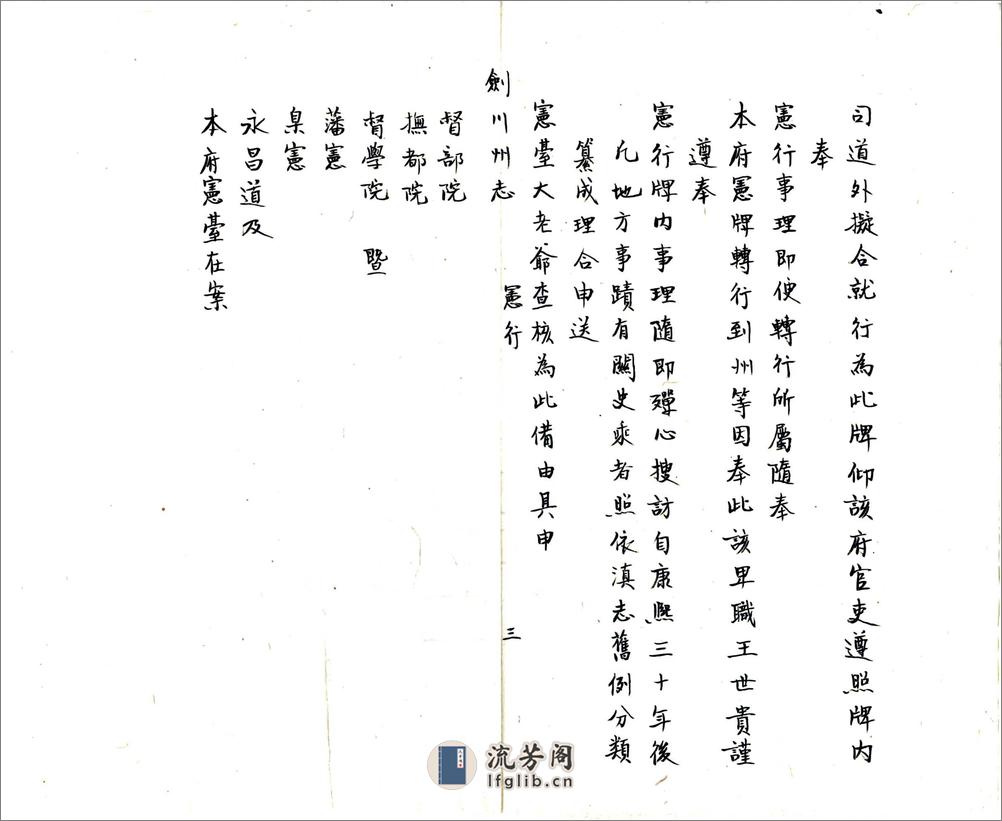 司道外擬合就行為此牌仰該府官吏遵照牌內
奉
憲行事理即便轉行所屬隨奉
本府憲牌轉行到州等因奉此該卑職王世貴謹
遵奉
憲行牌內事理隨即殫心搜訪自康熙三十年後
凡地方事蹟有關史乘者照依滇志舊例分類
纂成理合申送
憲臺大老爺查核為此備由具申
劍川州志 憲行 三
督部院
撫都院
督學院 暨
藩憲
臬憲
永昌道及
本府憲臺在案
流芳阁
lfglib.cn